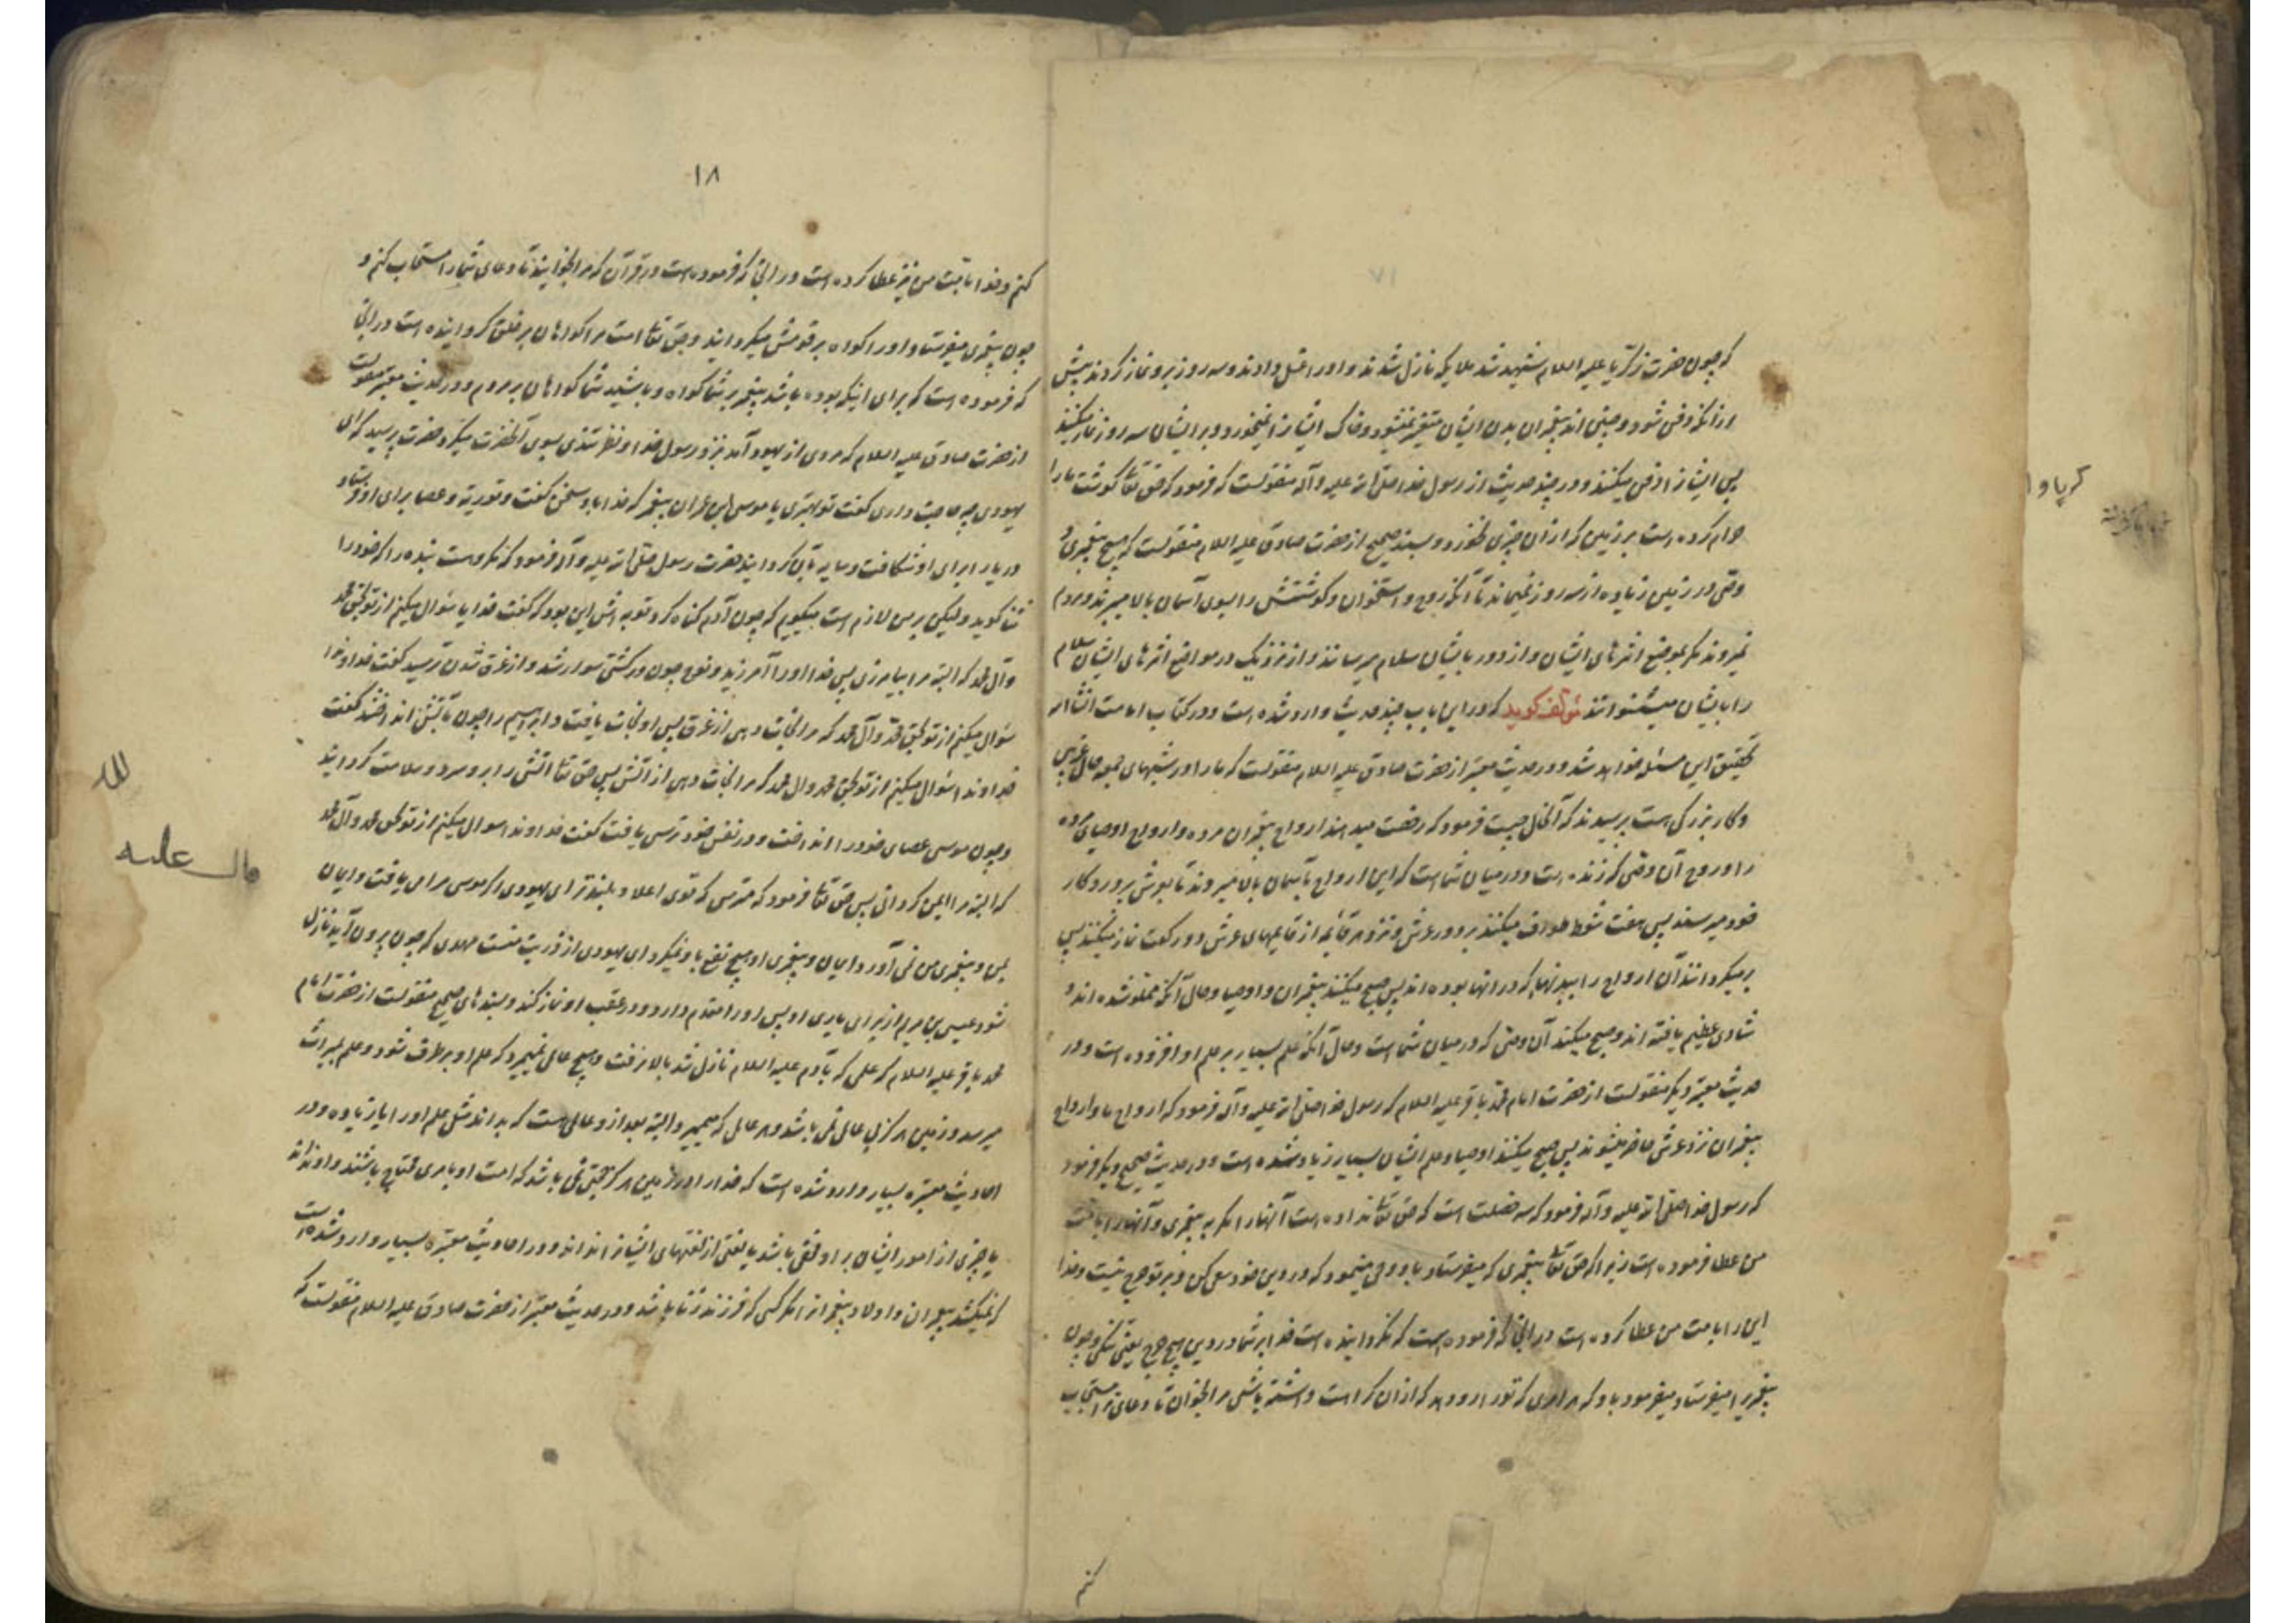 که چون حضرت زکریا علیه السلام شهید شد ملایکه نازل شدند و اورا غسل دادند و سه روز برو نماز کردند پیش
از آنکه دفن شود و چنین اند پیغمبران بدن ایشان متغیر نمیشود و خاک ایشانرا نمیخورد و بر ایشان سه روز نماز میکنند
پس ایشانرا دفن میکنند و در چند حدیث از رسول خدا صلی الله علیه وآله منقولست که فرمود که حق تعالی گوشت مارا
حرام کرده است بر زمین که از آن چیزی بخورد و بسند صحیح از حضرت صادق علیه السلام منقولست که هیچ پیغمبری و
وصی در زمین زیاده از سه روز نمیماند تا آنکه روح و استخوان و گوشتش را بسوی آسمان بالا میبرند و مردم
نمیروند مگر بموضع اثرهای ایشان و از دور بایشان سلام میرسانند و از نزدیک در مواضع اثرهای ایشان سلام
را بایشان میشنوانند مؤلف گوید که در این باب چند حدیث وارد شده است و در کتاب امامت انشاء الله
تحقیق این مسئله خواهد شد و در حدیث معتبر از حضرت صادق علیه السلام منقولست که مارا در شبهای جمعه حال غریبی
و کار بزرگی است پرسیدند که آنحال چیست فرمود که رخصت میدهند ارواح پیغمبران مرده و ارواح اوصیای مرده
را و روح آن وصی که زنده است و در میان شماست که این ارواح بآسمان بالا میروند تا بعرش پروردگار
خود میرسند پس هفت شوط طواف میکنند بر دور عرش و نزد هر قائمه از قایمهای عرش دو رکعت نماز میکنند پس
بر میگردانند آن ارواح را ببدنهای که در آنها بوده اند پس صبح میکنند پیغمبران و اوصیا و حال آنکه مملو شده اند و
شادی عظیم یافته اند و صبح میکند آن وصی که در میان شما است و حال آنکه علم بسیار بر علم او افزوده است و در
حدیث معتبر دیگر منقولست از حضرت امام محمد باقر علیه السلام که رسول خدا صلی الله علیه وآله فرمود که ارواح ما و ارواح
پیغمبران نزد عرش حاضر میشوند پس صبح میکنند اوصیا و علم ایشان بسیار زیاد شده است و در حدیث صحیح دیگر فرمود
که رسول خدا صلی الله علیه وآله فرمود که سه خصلت است که حق تعالی نداده است آنهارا مگر به پیغمبری و آنهارا بامت
من عطا فرموده است زیرا که حق تعالی پیغمبری که میفرستاد باو وحی مینمود که در دین خود سعی کن و بر تو حرج نیست و خدا
این را بامت من عطا کرده است در آنجا که فرموده است که نگردانیده است خدا بر شما در دین هیچ حرج یعنی تنگی و چون
پیغمبریرا میفرستاد میفرمود باو که هر امری که تورا رو دهد که از آن کراهت داشته باشی مرا بخوان تا دعای ترا مستجاب
کنم
۱۸
کنم و خدا بامت من نیز عطا کرده است در آنجا که فرموده است در قرآن که مرا بخوانید تا دعای شمارا مستجاب کنم و
چون پیغمبری میفرستاد اورا گواه بر قومش میگردانید و حق تعالی امت مرا گواهان بر خلق گردانیده است در آنجا
که فرموده است که برای اینکه بوده باشد پیغمبر بر شما گواه و باشید شما گواهان بر مردم و در حدیث معتبر منقولست
از حضرت صادق علیه السلام که مردی از یهود آمد بنزد رسول خدا و نظر تندی بسوی آنحضرت میکرد حضرت پرسید که ای
یهودی چه حاجت داری گفت تو بهتری یا موسی بن عمران پیغمبر که خدا با او سخن گفت و توریة و عصا برای او فرستاد
دریارا برای او شکافت و سایه بان گردانید حضرت رسول صلی الله علیه وآله فرمود که مکروهست بنده را که خودرا
ثنا گوید و لیکن بر من لازم است میگویم که چون آدم گناه کرد توبه اش این بود که گفت خدایا سؤال میکنم از تو بحق محمد
و آل محمد که البته مرا بیامرزی پس خدا اورا آمرزید و نوح چون در کشتی سوار شد و از غرق شدن ترسید گفت خداوندا
سؤال میکنم از تو بحق محمد و آل محمد که مرا نجات دهی از غرق پس او نجات یافت و ابراهیم را چون بآتش انداختند گفت
خداوندا سؤال میکنم از تو بحق محمد و آل محمد که مرا نجات دهی از آتش پس حق تعالی آتش را برو سرد و سلامت گردانید
و چون موسی عصای خودرا انداخت و در نفس خود ترسی یافت گفت خداوندا سوال میکنم از تو بحق محمد و آل محمد
که البته مرا ایمن گردانی پس حق تعالی فرمود که مترس که توی اعلا و بلندتر ای یهودی اگر موسی مرا می یافت و ایمان
بمن و پیغمبری من نمی آورد ایمان و پیغمبری او هیچ نفع باو نمیکرد ای یهودی از ذریت منست مهدی که چون بیرون آید نازل
شود عیسی بن مریم از برای یاری او پس اورا مقدم دارد و در عقب او نماز کند و بسندهای صحیح منقولست از حضرت امام
محمد باقر علیه السلام که علمی که بآدم علیه السلام نازل شد بالا نرفت و هیچ عالمی نمیمیرد که علم او بر طرف شود و علم بمیراث
میرسد و زمین هرگز بی عالم نمی باشد و هر عالمی که میمیرد البته بعد از و عالمی هست که بداند مثل علم اورا یا زیاده و در
احادیث معتبره بسیار وارد شده است که خدارا در زمین هرگز حجتی نمی باشد که امت او بامری محتاج باشند و او نداند
یا چیزی از امور ایشان بر او مخفی باشد یا لغتی از لغتهای ایشانرا نداند و در احادیث معتبره بسیار وارد شده است
که نمیکشد پیغمبران و اولاد پیغمبرانرا مگر کسی که فرزند زنا باشد و در حدیث معتبر از حضرت صادق علیه السلام منقولست که
لله
مال علیه